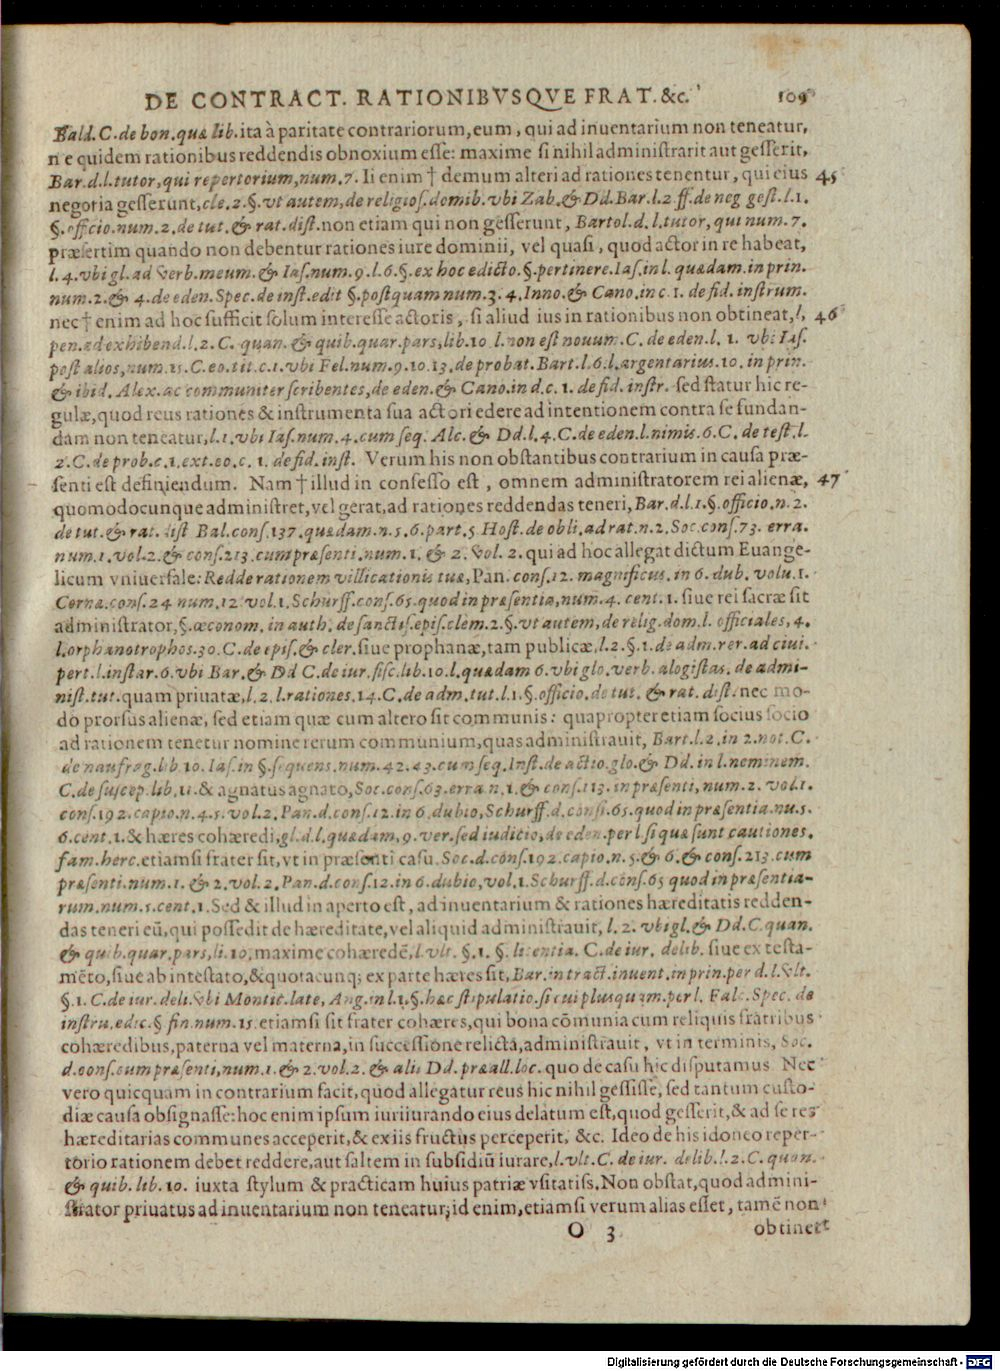 DE CONTRACT. RATIONIBVSQVE FRAT. &c. 109
Bald. C. de bon. quæ lib. ita à paritate contrariorum, eum, qui ad inuentarium non teneatur,
ne quidem rationibus reddendis obnoxium esse: maxime si nihil administrarit aut gesserit,
Bar. d. l. tutor, qui repertorium, num. 7. Ii enim † demum alteri ad rationes tenentur, qui eius 45
negotia gesserunt, cle. 2. §. vt autem, de religios. domib. vbi Zab. & Dd. Bar. l. 2 ff. de neg gest. l. 1.
§. officio. num. 2. de tut. & rat. dist. non etiam qui non gesserunt, Bartol. d. l. tutor, qui num. 7.
præsertim quando non debentur rationes iure dominii, vel quasi, quod actor in re habeat,
l. 4. vbi gl. ad verb. meum. & Ias. num. 9. l. 6. §. ex hoc edicto. §. pertinere. Ias. in l. quædam. in prin.
num. 2. & 4. de eden. Spec. de inst. edit §. postquam num. 3. 4. Inno. & Cano. in c. 1. de fid. instrum.
nec † enim ad hoc sufficit solum interesse actoris, si aliud ius in rationibus non obtineat, l, 46
pen. ad exhibend. l. 2. C. quan. & quib. quar. pars, lib. 10 l. non est nouum. C. de eden. l. 1. vbi Ias.
post alios, num. 15. C. eo. tit. c. 1. vbi Fel. num. 9. 10. 13. de probat. Bart. l. 6. l. argentarius. 10. in prin.
& ibid. Alex. ac communiter scribentes, de eden. & Cano. in d. c. 1. de fid. instr. sed statur hic re-
gulæ, quod reus rationes & instrumenta sua actori edere ad intentionem contra se fundan-
dam non teneatur, l. 1. vbi Ias. num. 4. cum seq. Alc. & Dd. l. 4. C. de eden. l. nimis. 6. C. de test. l.
2. C. de prob. c. 1. ext. eo. c. 1. de fid. inst. Verum his non obstantibus contrarium in causa præ-
senti est definiendum. Nam † illud in confesso est, omnem administratorem rei alienæ, 47
quomodocunque administret, vel gerat, ad rationes reddendas teneri, Bar. d. l. 1. §. officio. n. 2.
de tut. & rat. dist Bal. cons. 137. quædam. n. 5. 6. part. 5 Host. de obli. ad rat. n. 2. Soc. cons. 73. erra.
num. 1. vol. 2. & cons. 213. cum præsenti. num. 1. & 2. vol. 2. qui ad hoc allegat dictum Euange-
licum vniuersale: Redde rationem villicationis tuæ, Pan. cons. 12. magnificus. in 6. dub. volu. 1.
Corna. cons. 24 num. 12 vol. 1. Schurff. cons. 65. quod in præsentia, num. 4. cent. 1. siue rei sacræ sit
administrator, §. œconom. in auth. de sanctis. epis. clem. 2. §. vt autem, de relig. dom. l. officiales, 4.
l. orphanotrophos. 30. C. de epis. & cler. siue prophanæ, tam publicæ, l. 2. §. 1. de adm. rer. ad ciui.
pert. l. instar. 6. vbi Bar. & Dd C. de iur. fisc. lib. 10. l. quædam 6. vbi glo. verb. alogistas. de admi-
nist. tut. quam priuatæ, l. 2. l. rationes. 14. C. de adm. tut. l. 1. §. officio. de tut. & rat. dist. nec mo-
do prorsus alienæ, sed etiam quæ cum altero sit communis: quapropter etiam socius socio
ad rationem tenetur nomine rerum communium, quas administrauit, Bart. l. 2. in 2. not. C.
de naufrag. lib 10. Ias. in §. sequens. num. 42. 43. cum seq. Inst. de actio. glo. & Dd. in l. neminem.
C. de suscep. lib. 11. & agnatus agnato, Soc. cons. 63. erra. n. 1. & cons. 113. in præsenti, num. 2. vol. 1.
cons. 192. capio. n. 4. 5. vol. 2. Pan. d. cons. 12. in 6. dubio, Schurff. d. consi. 65. quod in præsentia. nu. 5.
6. cent. 1. & hæres cohæredi, gl. d. l. quædam, 9. ver. sed iuditio, de eden. per l. si quæ sunt cautiones.
fam. herc. etiamsi frater sit, vt in præsenti casu. Soc. d. cons. 192. capio. n. 5. & 6. & cons. 213. cum
præsenti. num. 1. & 2. vol. 2. Pan. d. cons. 12. in 6. dubio, vol. 1. Schurff. d. cons. 65 quod in præsentia-
rum. num. 5. cent. 1. Sed & illud in aperto est, ad inuentarium & rationes hæreditatis redden-
das teneri eū, qui possedit de hæreditate, vel aliquid administrauit, l. 2. vbi gl. & Dd. C. quan.
& quib. quar. pars, li. 10. maxime cohæredē, l. vlt. §. 1. §. licentia. C. de iur. delib. siue ex testa-
mēto, siue ab intestato, & quotacunq; ex parte hæres sit, Bar. in tract. inuent. in prin. per d. l. vlt.
§. 1. C. de iur. deli. vbi Montic. late, Ang. in l. 1. §. hæc stipulatio. si cui plus quam. per l. Falc. Spec. de
instru. edic. § fin. num. 15. etiamsi sit frater cohæres, qui bona cōmunia cum reliquis fratribus
cohæredibus, paterna vel materna, in successione relicta, administrauit, vt in terminis, Soc.
d. cons. cum præsenti, num. 1. & 2. vol. 2. & alii Dd. præall. loc. quo de casu hic disputamus. Nec
vero quicquam in contrarium facit, quod allegatur reus hic nihil gessisse, sed tantum custo-
diæ causa obsignasse: hoc enim ipsum iuriiurando eius delatum est, quod gesserit, & ad se res
hæreditarias communes acceperit, & ex iis fructus perceperit, &c. Ideo de his idoneo reper-
torio rationem debet reddere, aut saltem in subsidiū iurare, l. vlt. C. de iur. delib. l. 2. C. quan.
& quib. lib. 10. iuxta stylum & practicam huius patriæ vsitatiss. Non obstat, quod admini-
strator priuatus ad inuentarium non teneatur; id enim, etiamsi verum alias esset, tamē non
O 3 obtinet
Digitalisierung gefördert durch die Deutsche Forschungsgemeinschaft - DFG